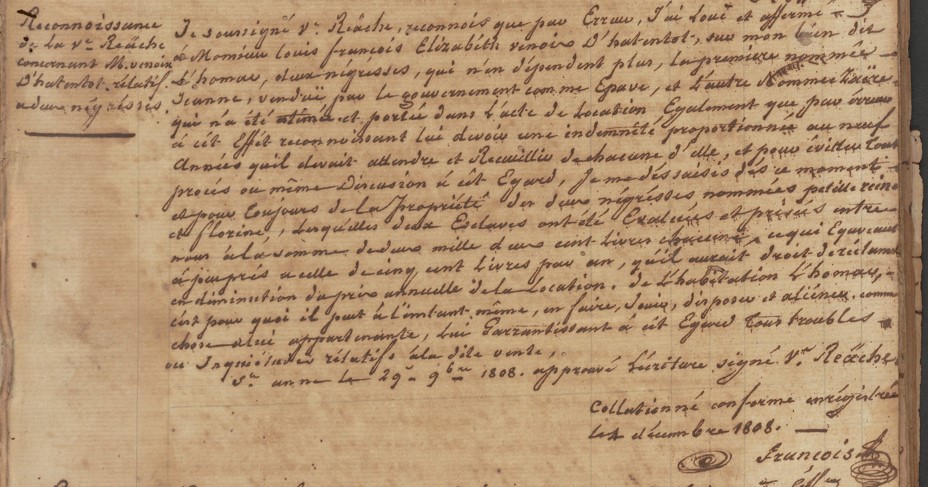 Reconnoissance
de La Ve Reäche
concernant M. venois
D'hatentot, rélatif
a deux négresses
Je soussigné Ve. Reäche, reconnois que par Erreur, J'ai Loué et affermé
à Monsieur louis françois Elizabeth venois D'hatentot, sur mon bien dit
L'homar, deux négresses, qui n'en dépendent plus, la première nommée
Jeanne, vendue par le gouvernement comme Epave, et L'autre Nommée
qui n'a été et portée dans L'acte de Location Egalement que par érreur
à cét Effét reconnoissant lui devoir une indemnité proportionnée au neuf
Années qu'il devait attendre et Recueillir de chacune d'elle, et pour éviter tout
procès ou même Discusion à cét Egard, Je me dessaisis dès ce moment
et pour toujours de la Propriété des deux négresses nommées petite reine
et florine, Lesquelles deux Esclaves ont été Evaluées et prisées entre
nous à la somme de deux mille deux cent Livres chacune, ce qui Equivaut
à peu près a celle de cinq cent Livres par an, qu'il aurait droit de réclamer
en diminution du prix annuelle de la Location. de L'habitation L'homar,
c'ést pour quoi il peut à l'instant même, en faire, Jouir, disposer et aliéner, comme
chose a lui appartenante, Lui Garrantissant à cét Egard tous troubles
ou Inquiétudes rélatifs à la dite vente,
Ste. anne le 29e. 9bre 1808. approuvé L'écriture signé Ve. Reäche,
Collationné conforme enrégistré
le 4 décembre 1808.
François